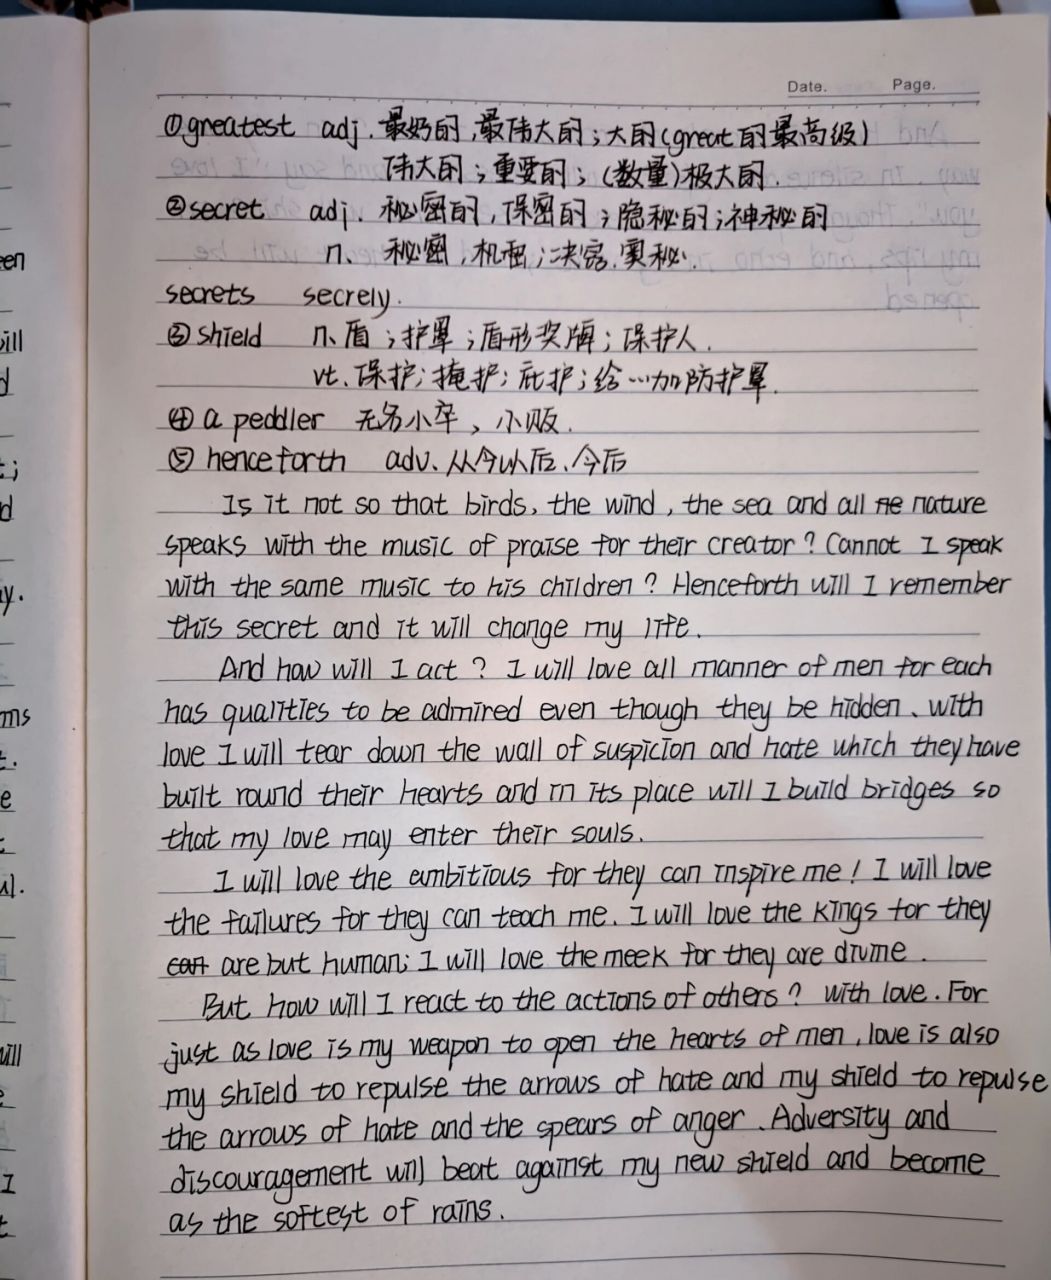 Date. Page.
①greatest adj. 最好的,最伟大的;大的(great的最高级)
伟大的;重要的;(数量)极大的.
②secret adj. 秘密的,保密的;隐秘的;神秘的
n. 秘密,机密;诀窍.奥秘.
secrets secrely.
③shield n.盾;护罩;盾形奖牌;保护人.
vt.保护;掩护;庇护;给…加防护罩.
④a peddler 无名小卒、小贩.
⑤henceforth adv、从今以后、今后
Is it not so that birds, the wind, the sea and all nature
speaks with the music of praise for their creator? Cannot I speak
with the same music to his children? Henceforth will I remember
this secret and it will change my life.
And how will I act? I will love all manner of men for each
has qualities to be admired even though they be hidden. with
love I will tear down the wall of suspicion and hate which they have
built round their hearts and in its place will I build bridges so
that my love may enter their souls.
I will love the ambitious for they can inspire me! I will love
the failures for they can teach me. I will love the kings for they
are but human; I will love the meek for they are divine.
But how will I react to the actions of others? with love. For
just as love is my weapon to open the hearts of men, love is also
my shield to repulse the arrows of hate and my shield to repulse
the arrows of hate and the spears of anger. Adversity and
discouragement will beat against my new shield and become
as the softest of rains.